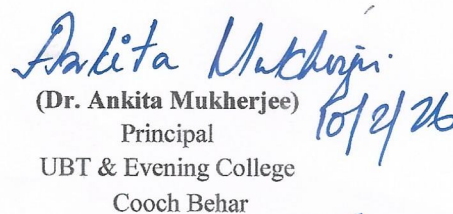 Ankita Mukherjee
(Dr. Ankita Mukherjee)
10/2/26
Principal
UBT & Evening College
Cooch Behar